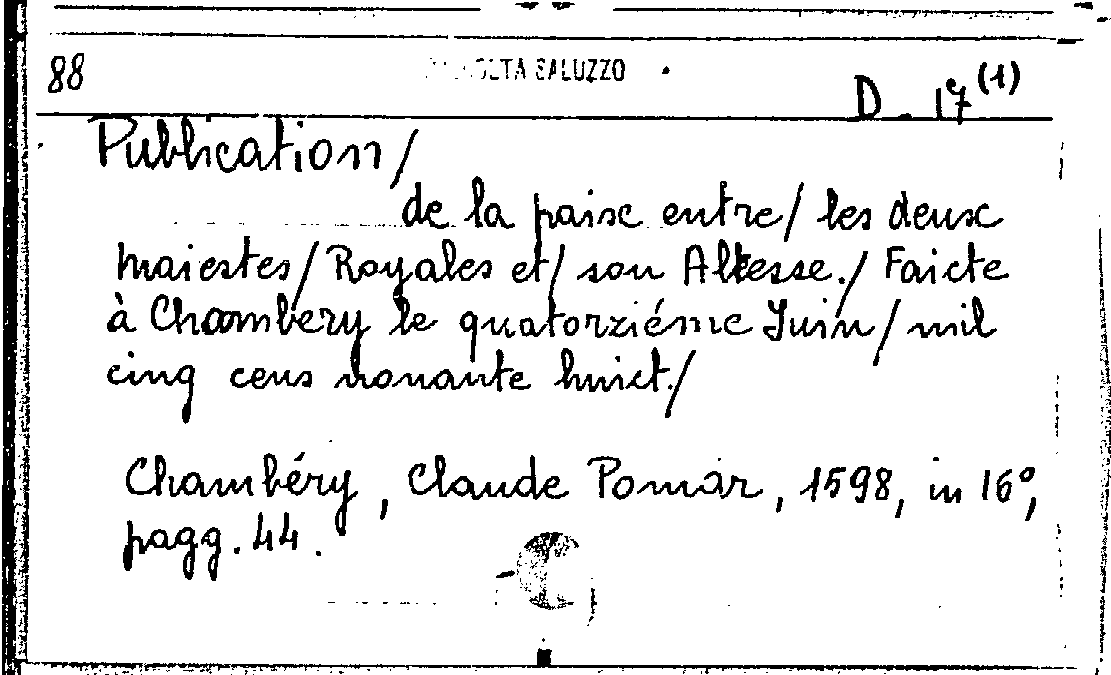 88 SALUZZO D. 17(1)
Publication/
de la paix entre/ les deux
maiestes/ Royales et/ son Altesse./ Faicte
à Chambery le quatorziéme Juin/ mil
cinq cens nonante huict./
Chambéry, Claude Pomar, 1598, in 16°,
pagg. 44.